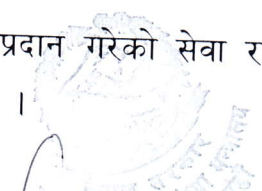 प्रदान गरेको सेवा र
।